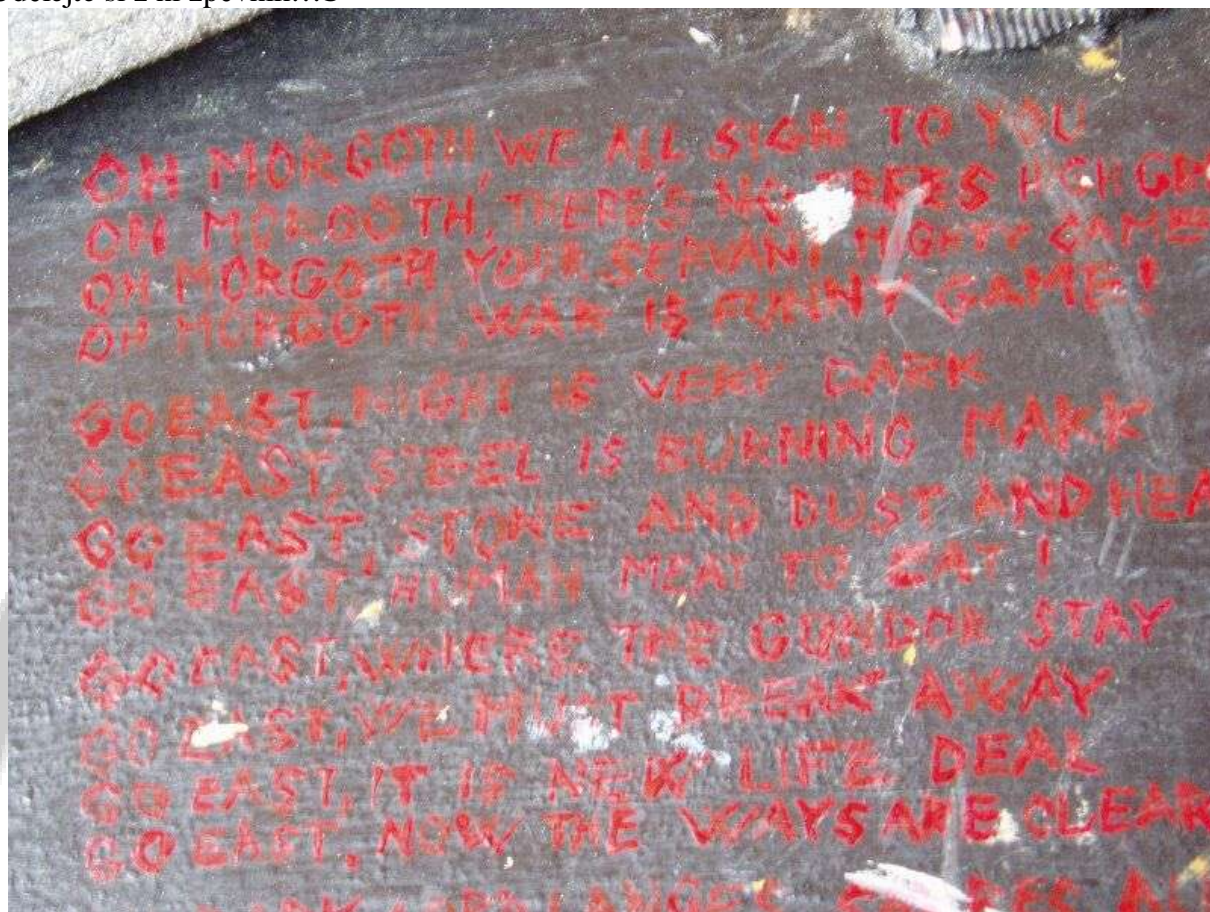 OH MORGOTH, WE ALL SIGN TO YOU
OH MORGOTH, THERE'S NO TREES HIGH
OH MORGOTH YOUR SERVANT MIGHTY GAME
OH MORGOTH, WAR IS FUNNY GAME!
GO EAST, NIGHT IS VERY DARK
GO EAST, STEEL IS BURNING MAKK
GO EAST, STONE AND DUST AND HEA
GO EAST, HUMAN MEAT TO EAT!
GO EAST, WHERE THE GUNDOR STAY
GO EAST, WE MUST BREAK AWAY
GO EAST, IT IS NEW LIFE DEAL
GO EAST, NOW THE WAYS ARE CLEAR